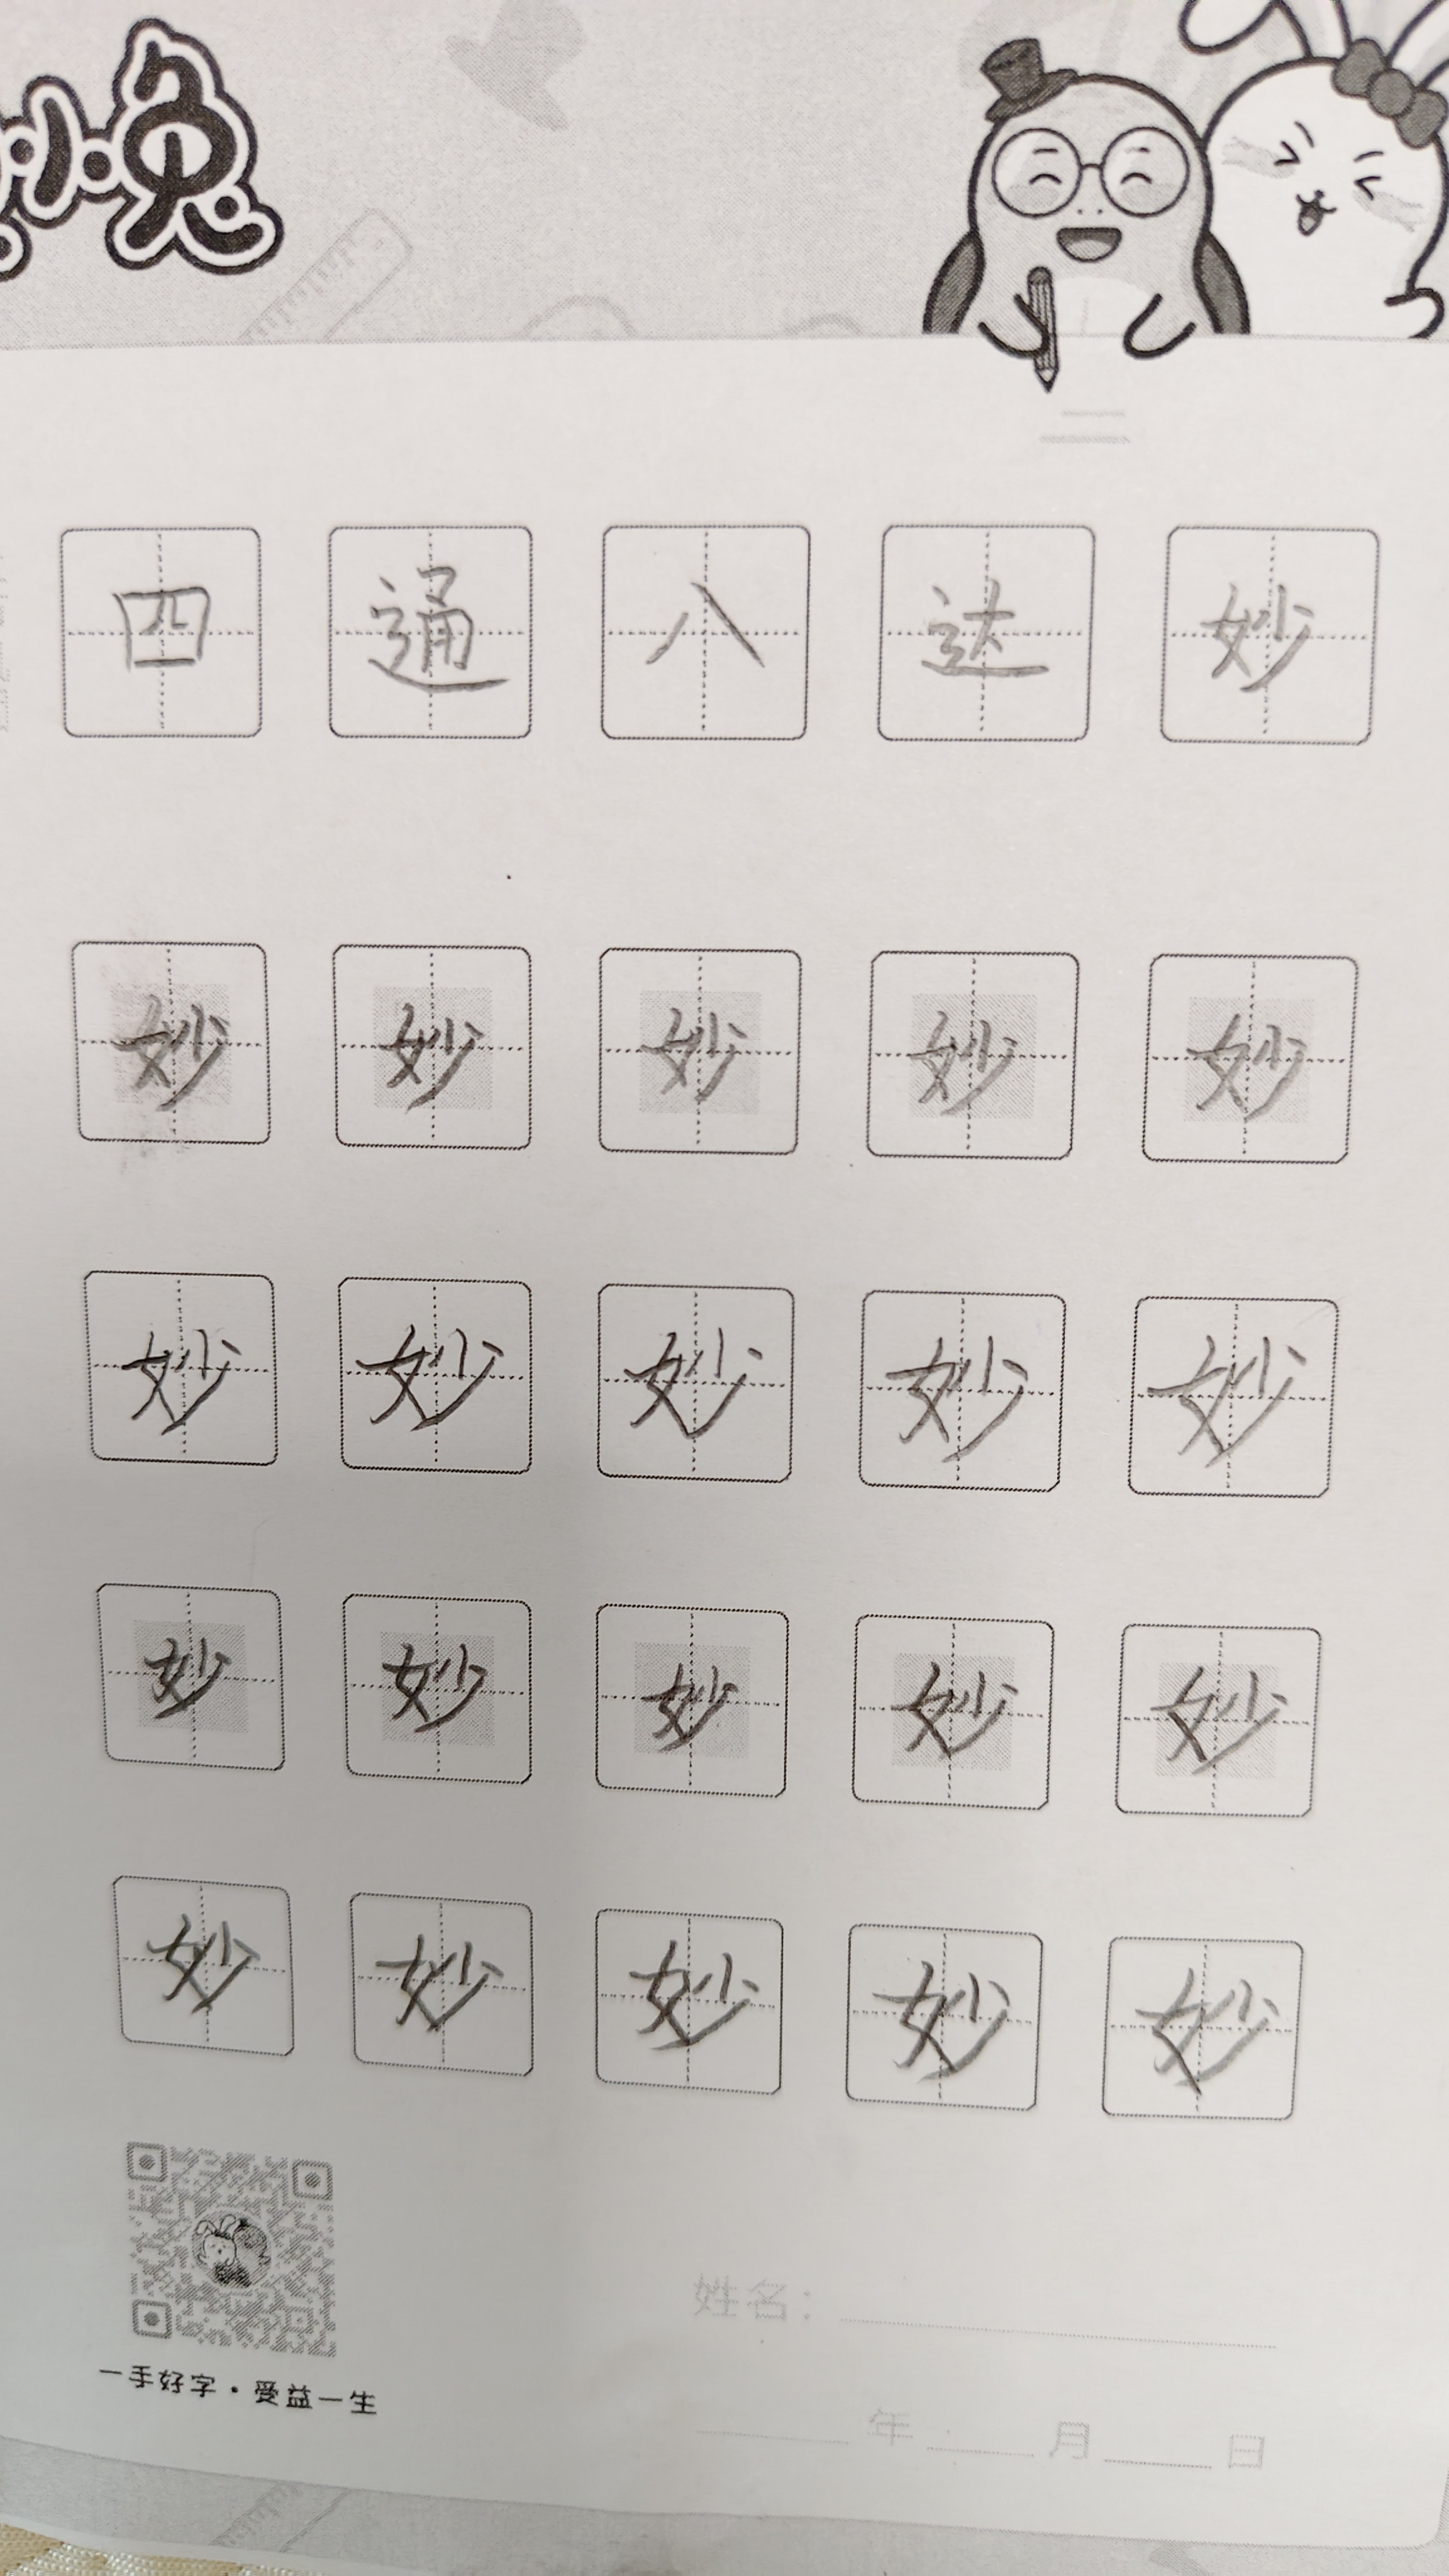 小兔
四 通 八 达 妙
妙 妙 妙 妙 妙
妙 妙 妙 妙 妙
妙 妙 妙 妙 妙
妙 妙 妙 妙 妙
姓名：
一手好字·受益一生
年 月 日